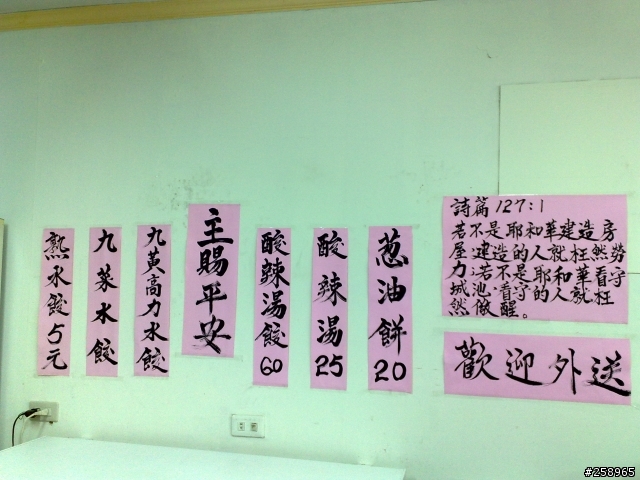 熟水餃5元
九菜水餃
九黃高力水餃
主賜平安
酸辣湯餃60
酸辣湯25
葱油餅20
詩篇127:1
若不是耶和華建造房
屋;建造的人就枉然勞
力;若不是耶和華看守
城池.看守的人就枉
然儆醒。
歡迎外送
#258965